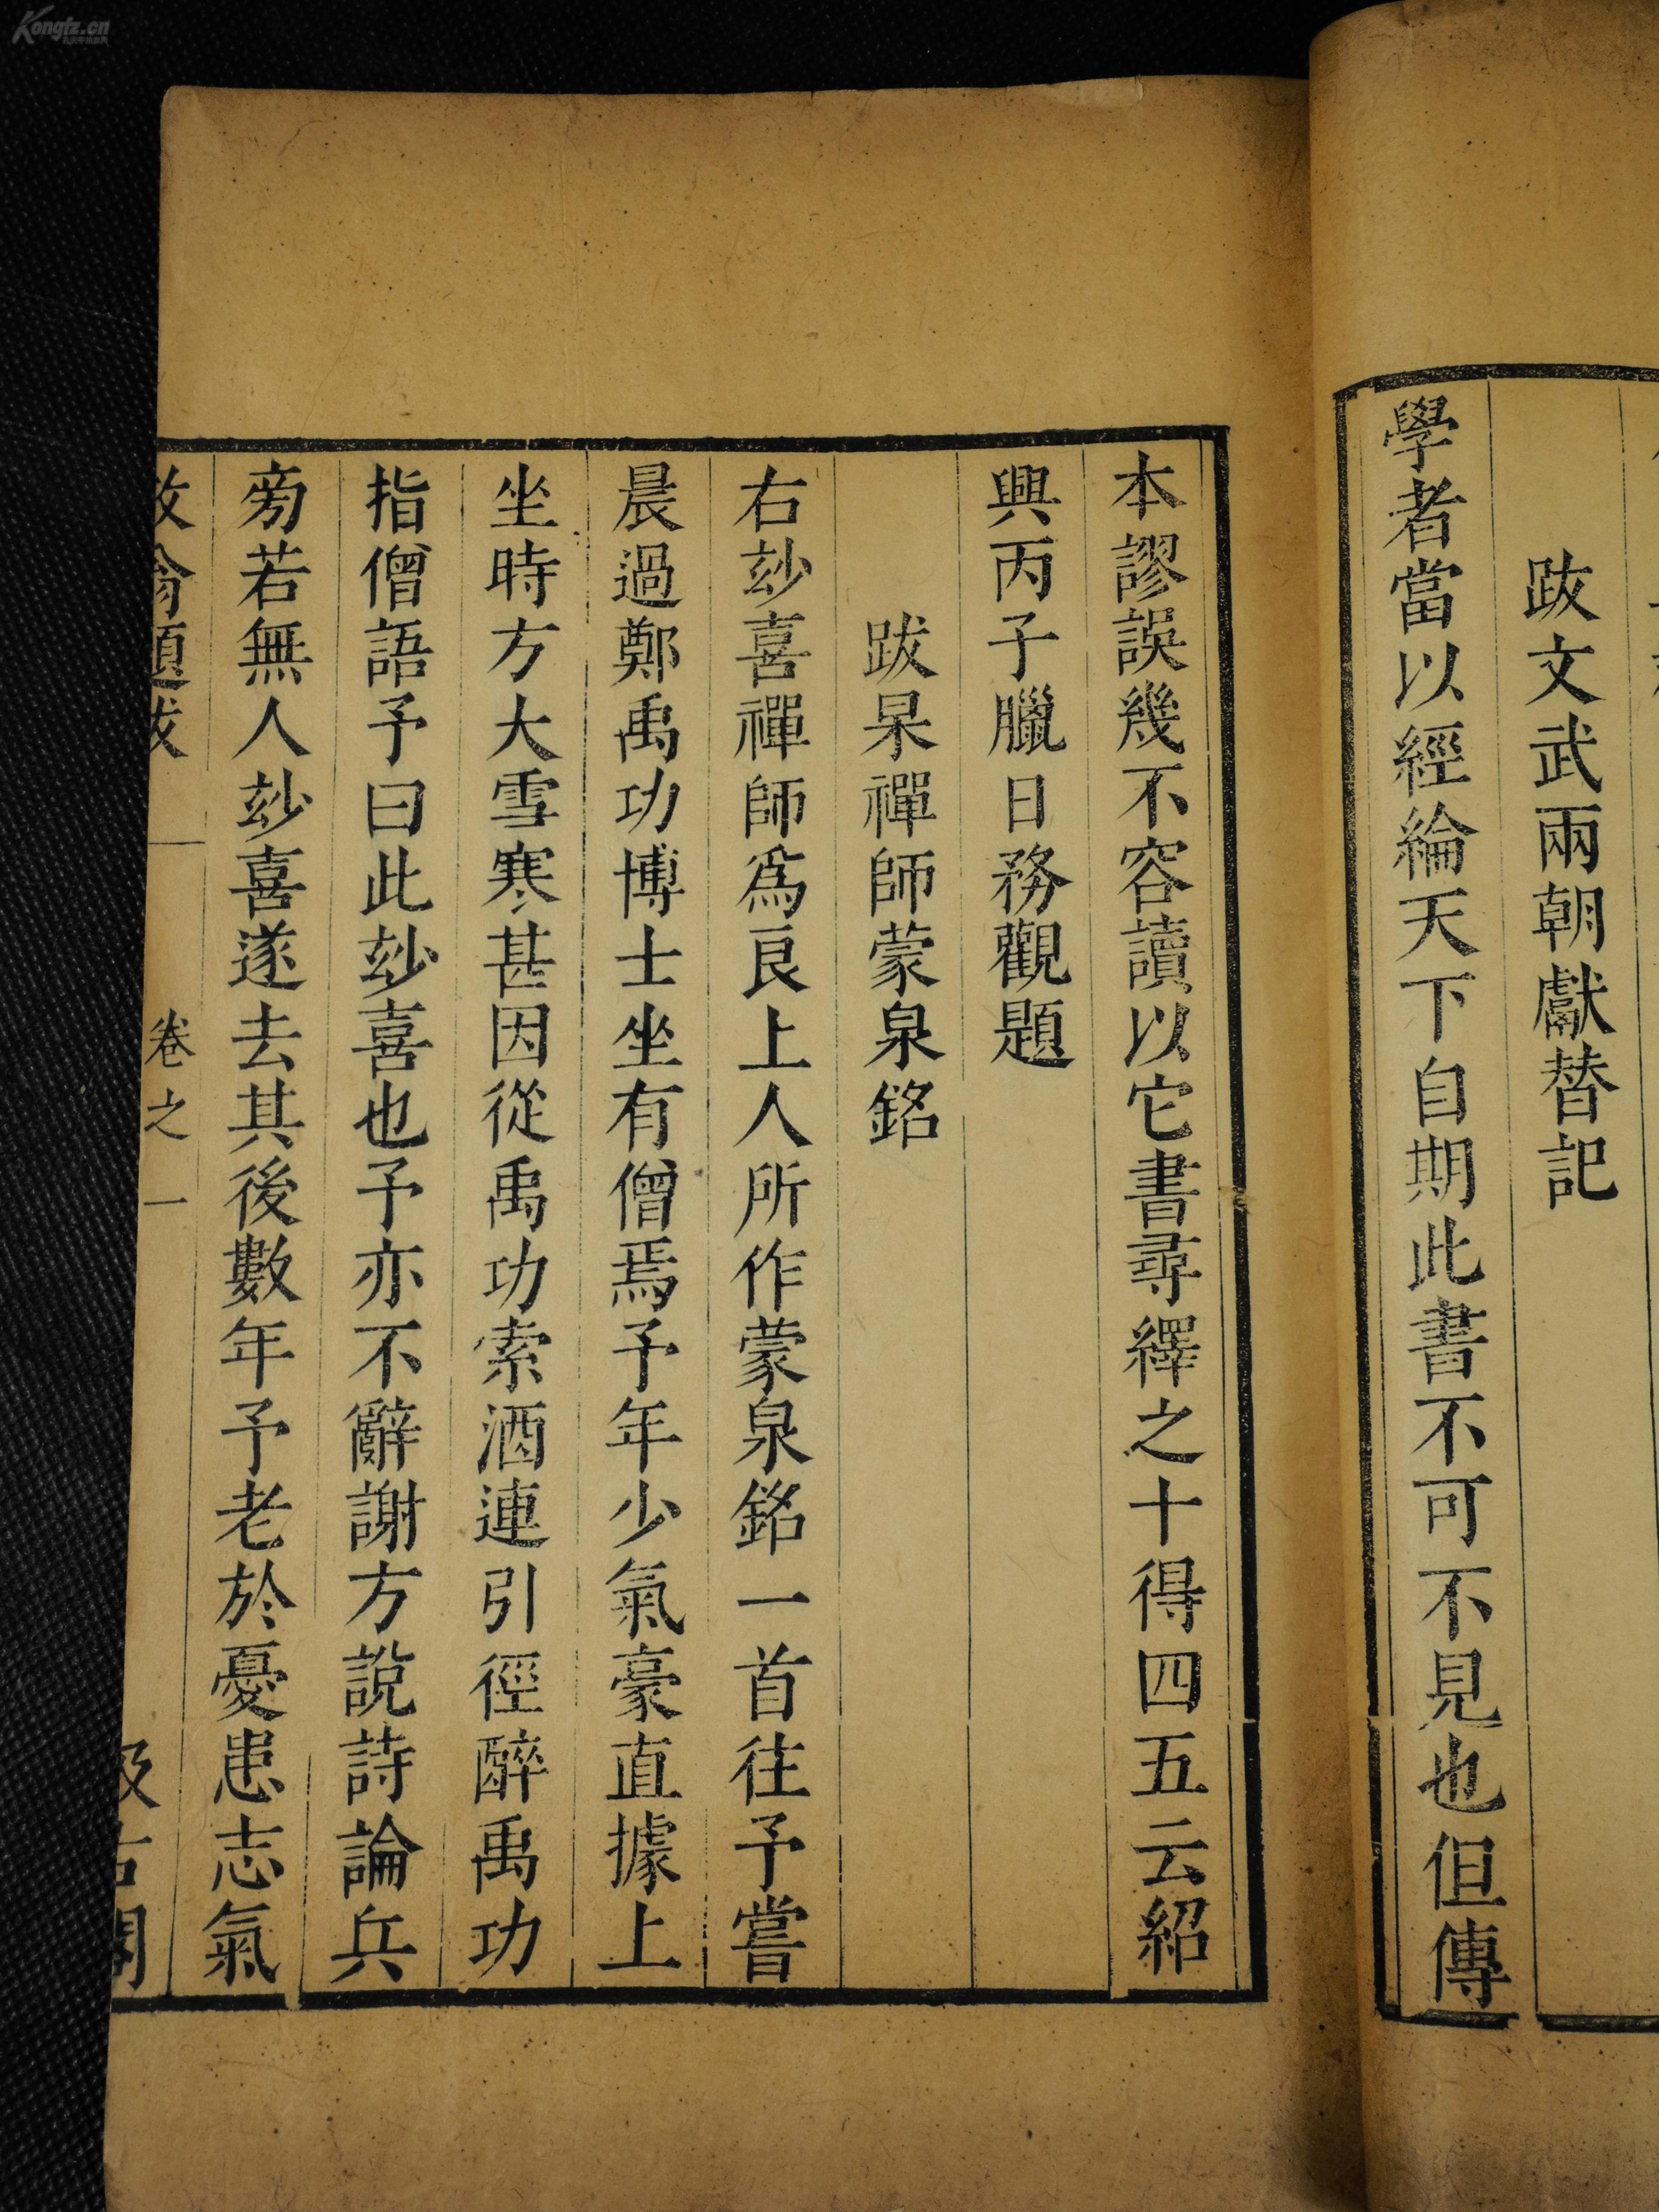 跋文武兩朝獻替記
學者當以經綸天下自期此書不可不見也但傳
本謬誤幾不容讀以它書尋繹之十得四五云紹
興丙子臘日務觀題
跋杲禪師蒙泉銘
右玅喜禪師爲良上人所作蒙泉銘一首往予嘗
晨過鄭禹功博士坐有僧焉予年少氣豪直據上
坐時方大雪寒甚因從禹功索酒連引徑醉禹功
指僧語予曰此玅喜也予亦不辭謝方說詩論兵
旁若無人玅喜遂去其後數年予老於憂患志氣
放翁題跋 卷之一 汲古閣
Kongfz.cn